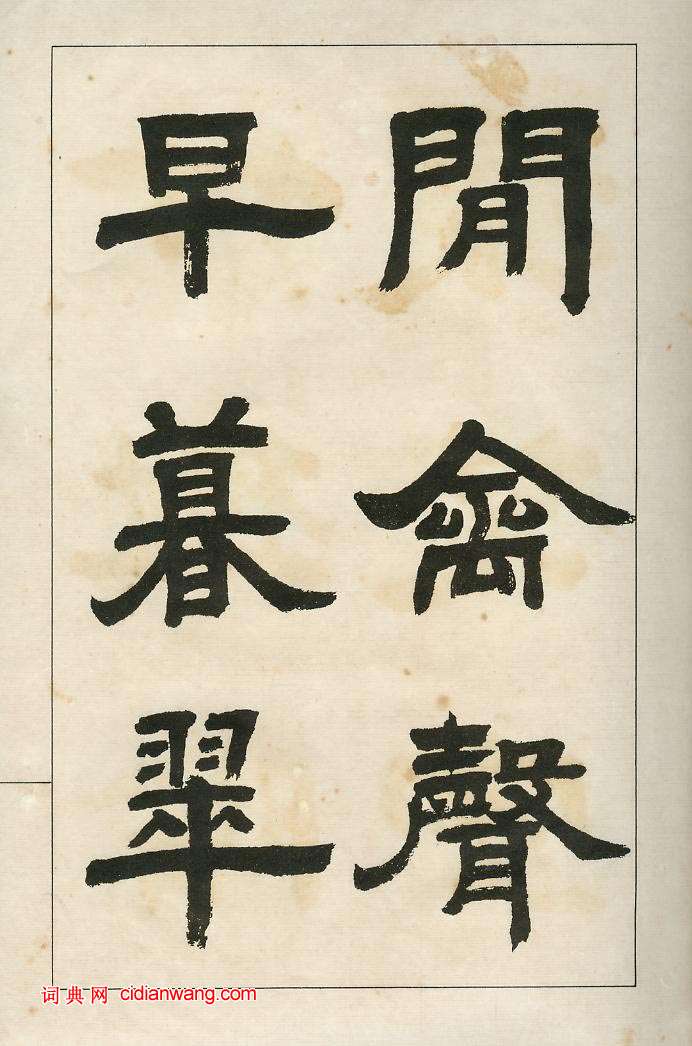 閒禽聲
早暮翠
词典网 cidianwang.com